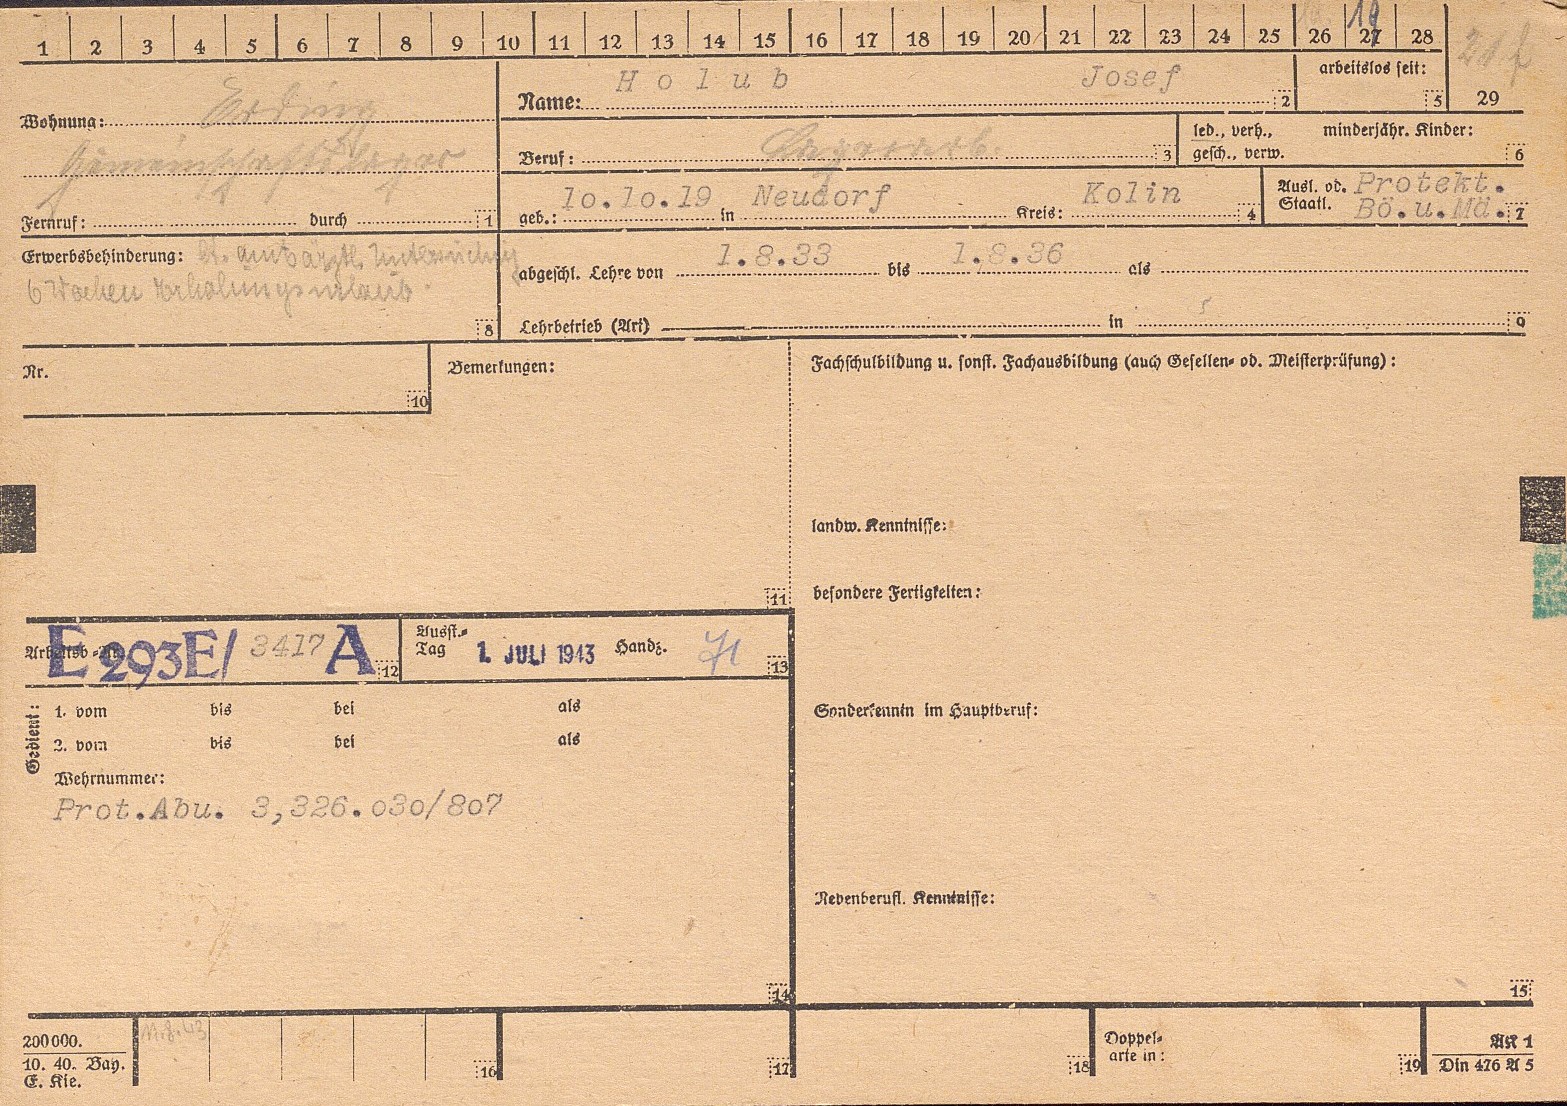 1 2 3 4 5 6 7 8 9 10 11 12 13 14 15 16 17 18 19 20 21 22 23 24 25 26 27 28
19
Wohnung: Erding
Gemeinschaftslager
Fernruf: durch 1
Name: Holub Josef 2
arbeitslos seit: 5
29
Beruf: Lagerarb. 3
led., verh., gesch., verw.
minderjähr. Kinder: 6
geb.: 10.10.19 in Neudorf Kreis: Kolin 4
Ausl. od. Staatl. Protekt. Bö.u.Mä. 7
Erwerbsbehinderung: lt. amtsärztl. Untersuchung
6 Wochen Erholungsurlaub. 8
abgeschl. Lehre von 1.8.33 bis 1.8.36 als
Lehrbetrieb (Art) in 9
Nr. 10
Bemerkungen: 11
Fachschulbildung u. sonst. Fachausbildung (auch Gesellen- od. Meisterprüfung):
landw. Kenntnisse:
besondere Fertigkeiten:
Arbeitsb.-Nr. E 293E/ 3417 A 12
Ausst.-Tag 1. JULI 1943 Handz. 13
Sonderkenntn im Hauptberuf:
Gedient:
1. vom bis bei als
2. vom bis bei als
Wehrnummer:
Prot.Abu. 3,326.030/807
14
Nebenberufl. Kenntnisse:
15
200000.
10. 40. Bay.
E. Kie.
11.8.43
16
17
18
Doppel-
arte in: 19
AK 1
Din 476 A 5